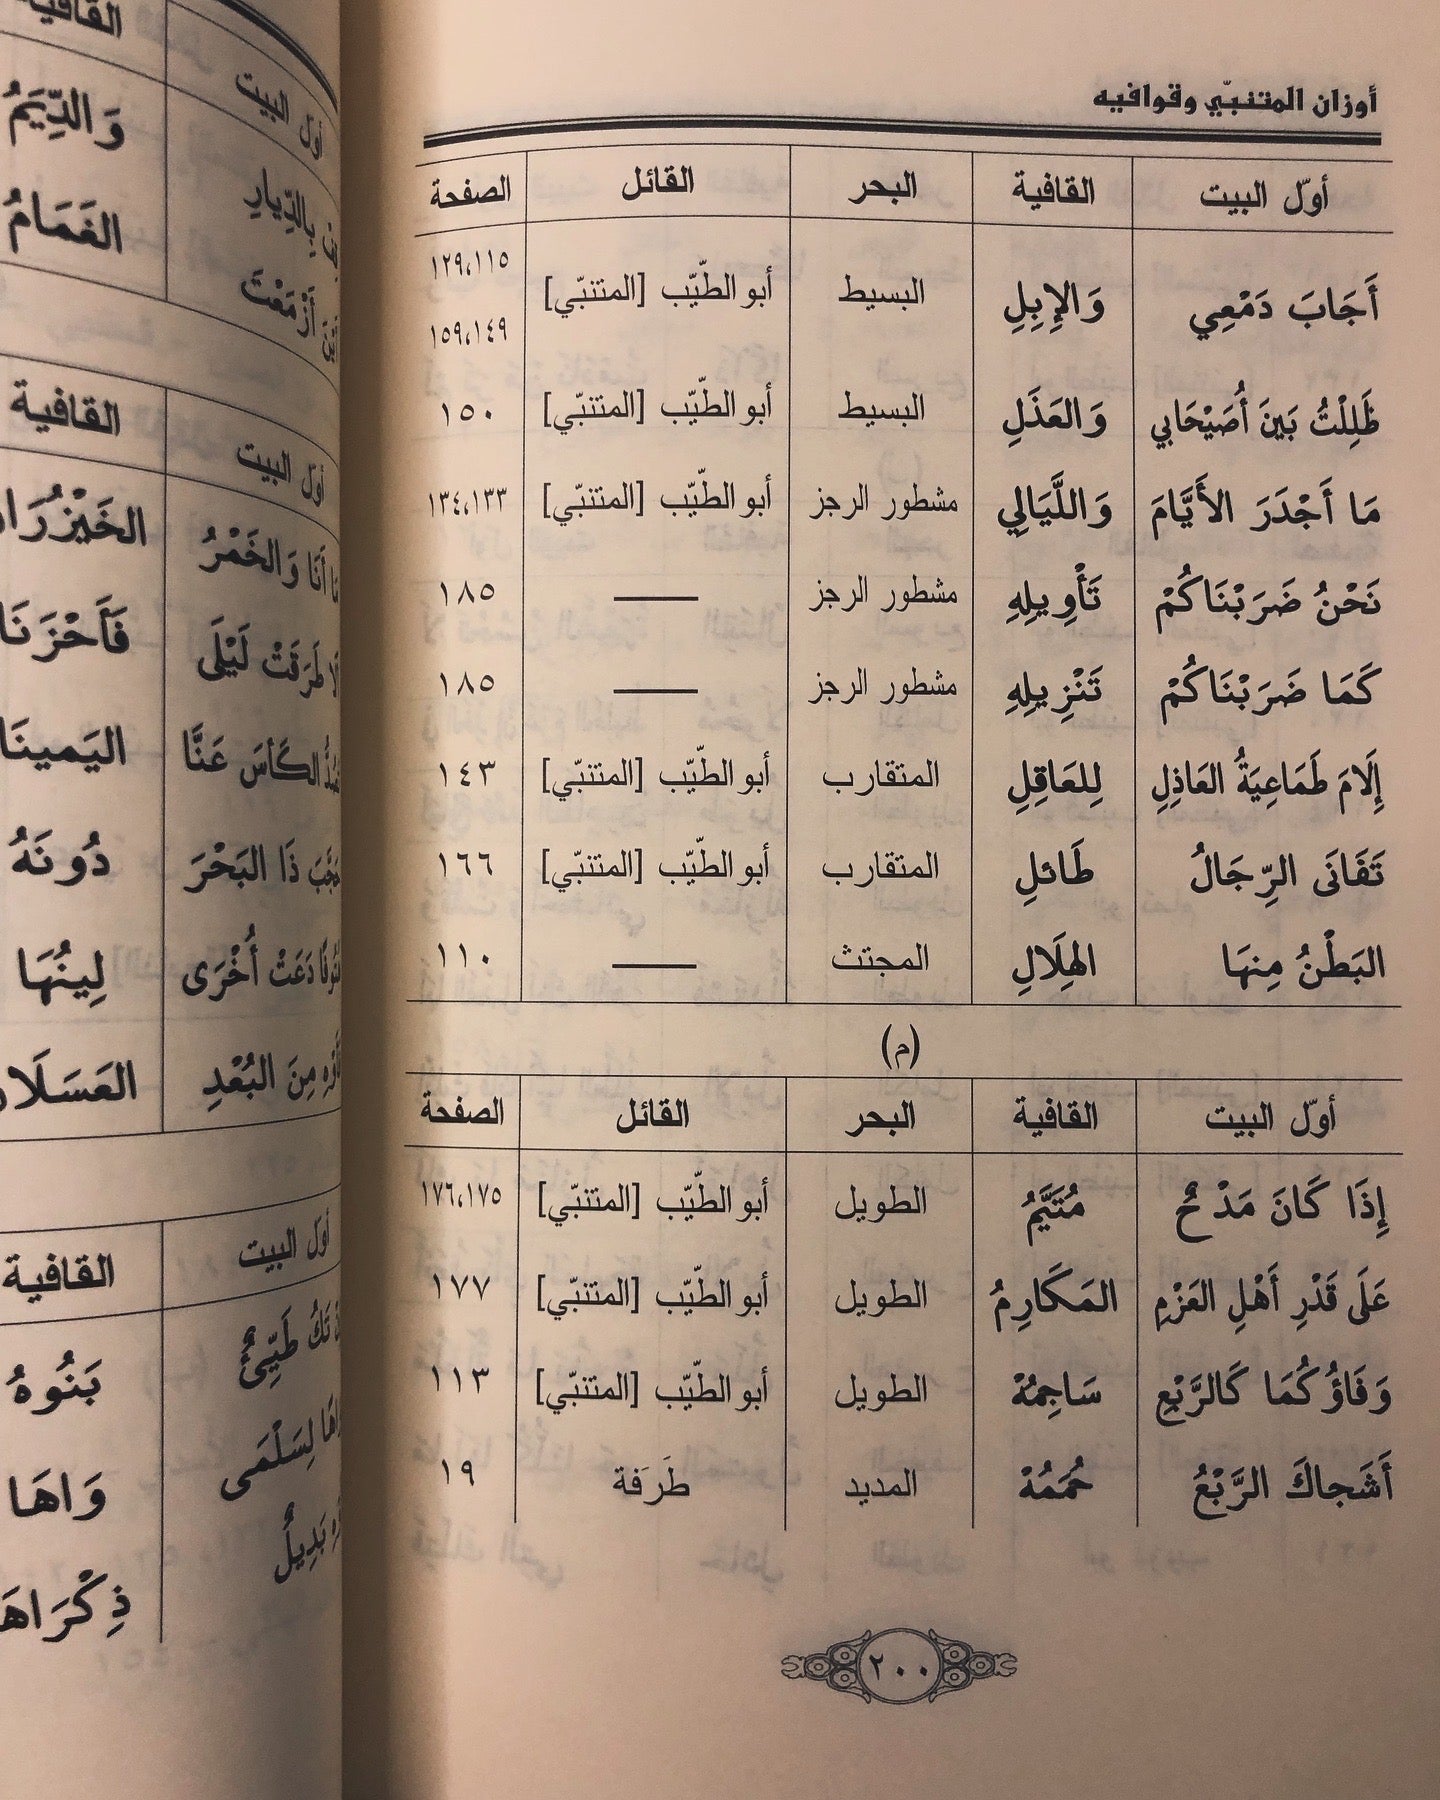 أوزان المتنبّي وقوافيه
أوّل البيت القافية البحر القائل الصفحة
أَجَابَ دَمْعِي وَالإِبِلِ البسيط أبو الطّيّب [المتنبّي] ١٢٩،١١٥
١٥٩،١٤٩
ظَلِلْتُ بَينَ أُصَيْحَابي وَالعَذَلِ البسيط أبو الطّيّب [المتنبّي] ١٥٠
مَا أَجْدَرَ الأَيَّامَ وَاللَّيَالِي مشطور الرجز أبو الطّيّب [المتنبّي] ١٣٤،١٣٣
نَحْنُ ضَرَبْنَاكُمْ تَأْوِيلِهِ مشطور الرجز —— ١٨٥
كَمَا ضَرَبْنَاكُمْ تَنْزِيلِهِ مشطور الرجز —— ١٨٥
إِلَامَ طَمَاعِيَةُ العَاذِلِ لِلعَاقِلِ المتقارب أبو الطّيّب [المتنبّي] ١٤٣
تَفَانَى الرِّجَالُ طَائلِ المتقارب أبو الطّيّب [المتنبّي] ١٦٦
البَطْنُ مِنهَا الهِلَالِ المجتث —— ١١٠
(م)
أوّل البيت القافية البحر القائل الصفحة
إِذَا كَانَ مَدْحٌ مُتَيَّمُ الطويل أبو الطّيّب [المتنبّي] ١٧٦،١٧٥
عَلَى قَدْرِ أَهْلِ العَزْمِ المَكَارِمُ الطويل أبو الطّيّب [المتنبّي] ١٧٧
وَفَاؤُكُمَا كَالرَّبْعِ سَاجِمُهْ الطويل أبو الطّيّب [المتنبّي] ١١٣
أَشَجاكَ الرَّبْعُ حُمَمُهْ المديد طَرَفة ١٩
٢٠٠
القافية
أوّل البيت
بِالدِّيارِ وَالدِّيَمُ
أَزْمَعْتَ الغَمَامُ
أوّل البيت القافية
أَنَا وَالخَمْرُ
طَرَقَتْ لَيْلَى فَأَحْزَنَا
الكَأسَ عَنَّا اليَمينَا
ذَا البَحْرَ دُونَهُ
دَعَتْ أُخْرَى لِينُهَا
مِنَ البُعْدِ
أوّل البيت القافية
تَكُ طَيِّئٌ بَنُوهُ
لِسَلْمَى وَاهَا
بَدِيلٌ